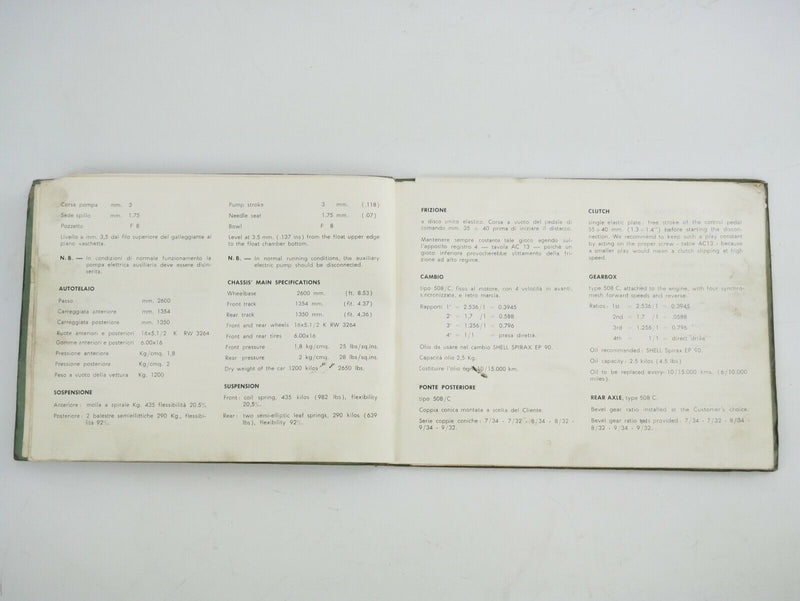 Corsa pompa mm. 3
Sede spillo mm. 1.75
Pozzetto F 8
Livello a mm. 3,5 dal filo superiore del galleggiante al
piano vaschetta.
N. B. — In condizioni di normale funzionamento la
pompa elettrica ausiliaria deve essere disin-
serita.
AUTOTELAIO
Passo mm. 2600
Carreggiata anteriore mm. 1354
Carreggiata posteriore mm. 1350
Ruote anteriori e posteriori 16x5.1/2 K RW 3264
Gomme anteriori e posteriori 6.00x16
Pressione anteriore Kg/cmq. 1,8
Pressione posteriore Kg/cmq. 2
Peso a vuoto della vettura Kg. 1200
SOSPENSIONE
Anteriore: molla a spirale Kg. 435 flessibilità 20,5%
Posteriore: 2 balestre semiellittiche 290 Kg., flessibi-
lità 92%.
Pump stroke 3 mm. (.118)
Needle seat 1.75 mm. (.07)
Bowl F 8
Level at 3,5 mm. (.137 ins) from the float upper edge
to the float chamber bottom.
N. B. — In normal running conditions, the auxiliary
electric pump should be disconnected.
CHASSIS' MAIN SPECIFICATIONS
Wheelbase 2600 mm. (ft. 8.53)
Front track 1354 mm. (fit. 4.37)
Rear track 1350 mm. (fit. 4.36)
Front and rear wheels 16x5.1/2 K RW 3264
Front and rear tires 6.00x16
Front pressure 1,8 kg/cmq. 25 lbs/sq.ins.
Rear pressure 2 kg/cmq. 28 lbs/sq.ins.
Dry weight of the car 1200 kilos 2650 lbs.
SUSPENSION
Front: coil spring, 435 kilos (982 lbs), flexibility
20,5%.
Rear: two semi-elliptic leaf springs, 290 kilos (639
lbs), flexibility 92%.
FRIZIONE
a disco unito elastico. Corsa a vuoto del pedale di
comando mm. 35 ÷ 40 prima di iniziare il distacco.
Mantenere sempre costante tale gioco agendo sul-
l'apposito registro 4 — tavola AC 13 — poichè un
gioco inferiore provocherebbe slittamento della fri-
zione ad alto regime.
CAMBIO
tipo 508/C, fisso al motore, con 4 velocità in avanti,
sincronizzate, e retro marcia.
Rapporti 1ª = 2.536/1 = 0.3945
2ª = 1.7 /1 = 0.588
3ª = 1.256/1 = 0.796
4ª = 1/1 = presa diretta.
Olio da usare nel cambio SHELL SPIRAX EP 90.
Capacità olio 2,5 Kg.
Sostituire l'olio ogni 10/15.000 km.
PONTE POSTERIORE
tipo 508/C
Coppia conica montata a scelta del Cliente.
Serie coppie coniche: 7/34 - 7/32 - 8/34 - 8/32 -
9/34 - 9/32.
CLUTCH
single elastic plate: free stroke of the control pedal
35÷40 mm. (1.3÷1.4") before starting the discon-
nection. We recommend to keep such a play constant
by acting on the proper screw - table AC13 - because
a smaller play would mean a clutch slipping at high
speed.
GEARBOX
type 508 C, attached to the engine, with four synchro-
mesh forward speeds and reverse.
Ratios: 1st = 2.536/1 = 0.3945
2nd = 1.7 /1 = .0588
3rd = 1.256/1 = 0.796
4th = 1/1 = direct drive
Oil recommended: SHELL Spirax EP 90.
Oil capacity: 2.5 kilos (4.5 lbs.)
Oil to be replaced every 10/15.000 kms. (6/10.000
miles).
REAR AXLE, type 508 C.
Bevel gear ratio installed at the Customer's choice.
Bevel gear ratio sets provided: 7/34 - 7/32 - 8/34 -
8/32 - 9/34 - 9/32.